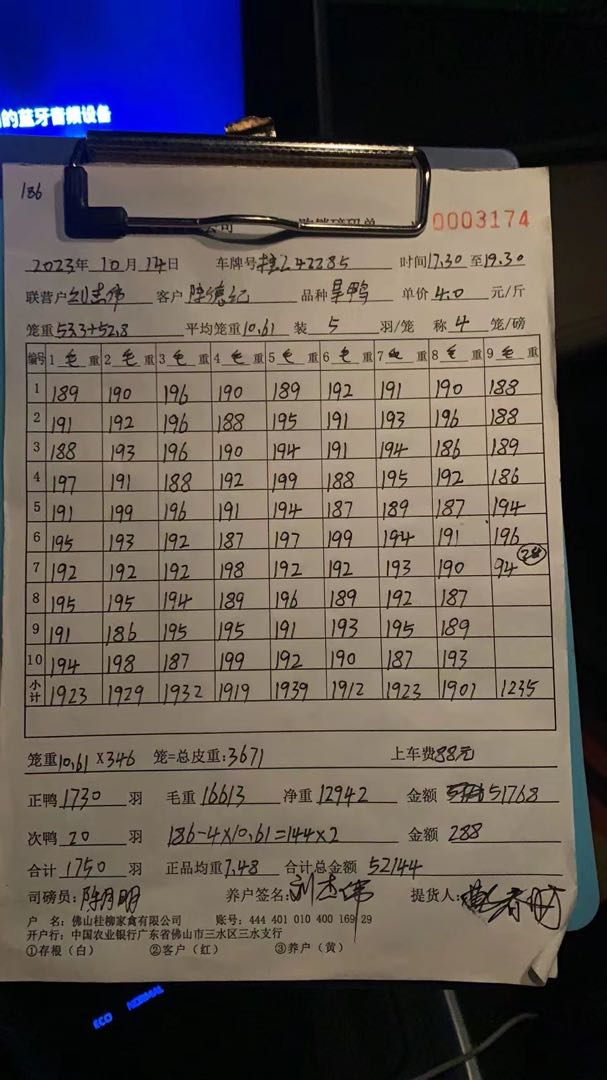 的蓝牙音频设备
186
公司 购销磅码单
0003174
2023年10月14日 车牌号桂L42285 时间17.30至19.30
联营户刘杰伟 客户陈德纪 品种旱鸭 单价4.0元/斤
笼重53.3+52.8 平均笼重10.61 装5羽/笼 称4笼/磅
编号 1毛重 2毛重 3毛重 4毛重 5毛重 6毛重 7毛重 8毛重 9毛重
1 189 190 196 190 189 192 191 190 188
2 191 192 196 188 195 191 193 196 188
3 188 193 196 190 194 191 194 186 189
4 197 191 188 192 199 188 195 192 186
5 191 199 196 191 194 187 189 187 194
6 195 193 192 187 197 199 194 191 196
7 192 192 192 198 192 192 193 190 94
8 195 195 194 189 196 189 192 187
9 191 186 195 195 191 193 195 189
10 194 198 187 199 192 190 187 193
小计 1923 1929 1932 1919 1939 1912 1923 1901 1235
笼重10.61×346 笼=总皮重:3671 上车费88元
正鸭1730羽 毛重16613 净重12942 金额51768
次鸭20羽 186-4×10.61=144×2 金额288
合计1750羽 正品均重7.48 合计总金额52144
司磅员:陈月明 养户签名:刘杰伟 提货人:
户 名:佛山桂柳家禽有限公司 账号:444 401 010 400 169 29
开户行:中国农业银行广东省佛山市三水区三水支行
①存根(白) ②客户(红) ③养户(黄)
ECO NORMAL